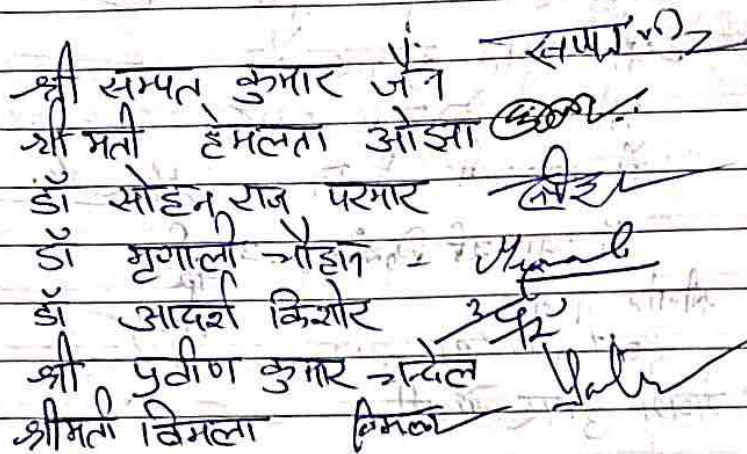 श्री सम्पत कुमार जैन
श्रीमती हेमलता ओझा
डॉ सोहन राज परमार
डॉ मृगाली चौहान -
डॉ आदर्श किशोर
श्री प्रवीण कुमार चन्देल
श्रीमती विमला विमला